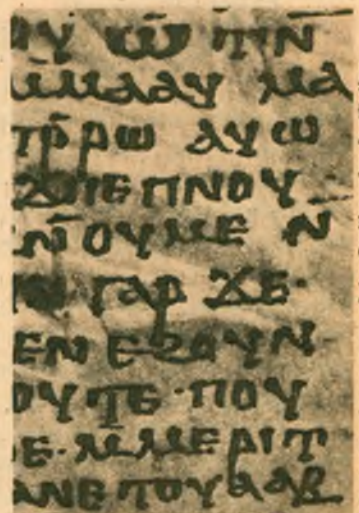 ⲟⲩ ⲱ̅ ⲧⲓⲛ̅
ⲙ̅ⲙⲁⲁⲩ ⲙⲁ
ⲧⲣ̅ⲣⲱ ⲁⲩⲱ
ⲡⲛⲟⲩ
ⲛ̅ⲟⲩⲙⲉ ⲛ̅
ⲅⲁⲣ ϫⲉ·
ⲉⲛ ⲉϩⲟⲩⲛ
ⲟⲩⲧⲉ·ⲡⲟⲩ
ⲉ·ⲙ̅ⲙⲉⲣⲓⲧ
ⲁⲛⲉⲧⲟⲩⲁⲁⲃ